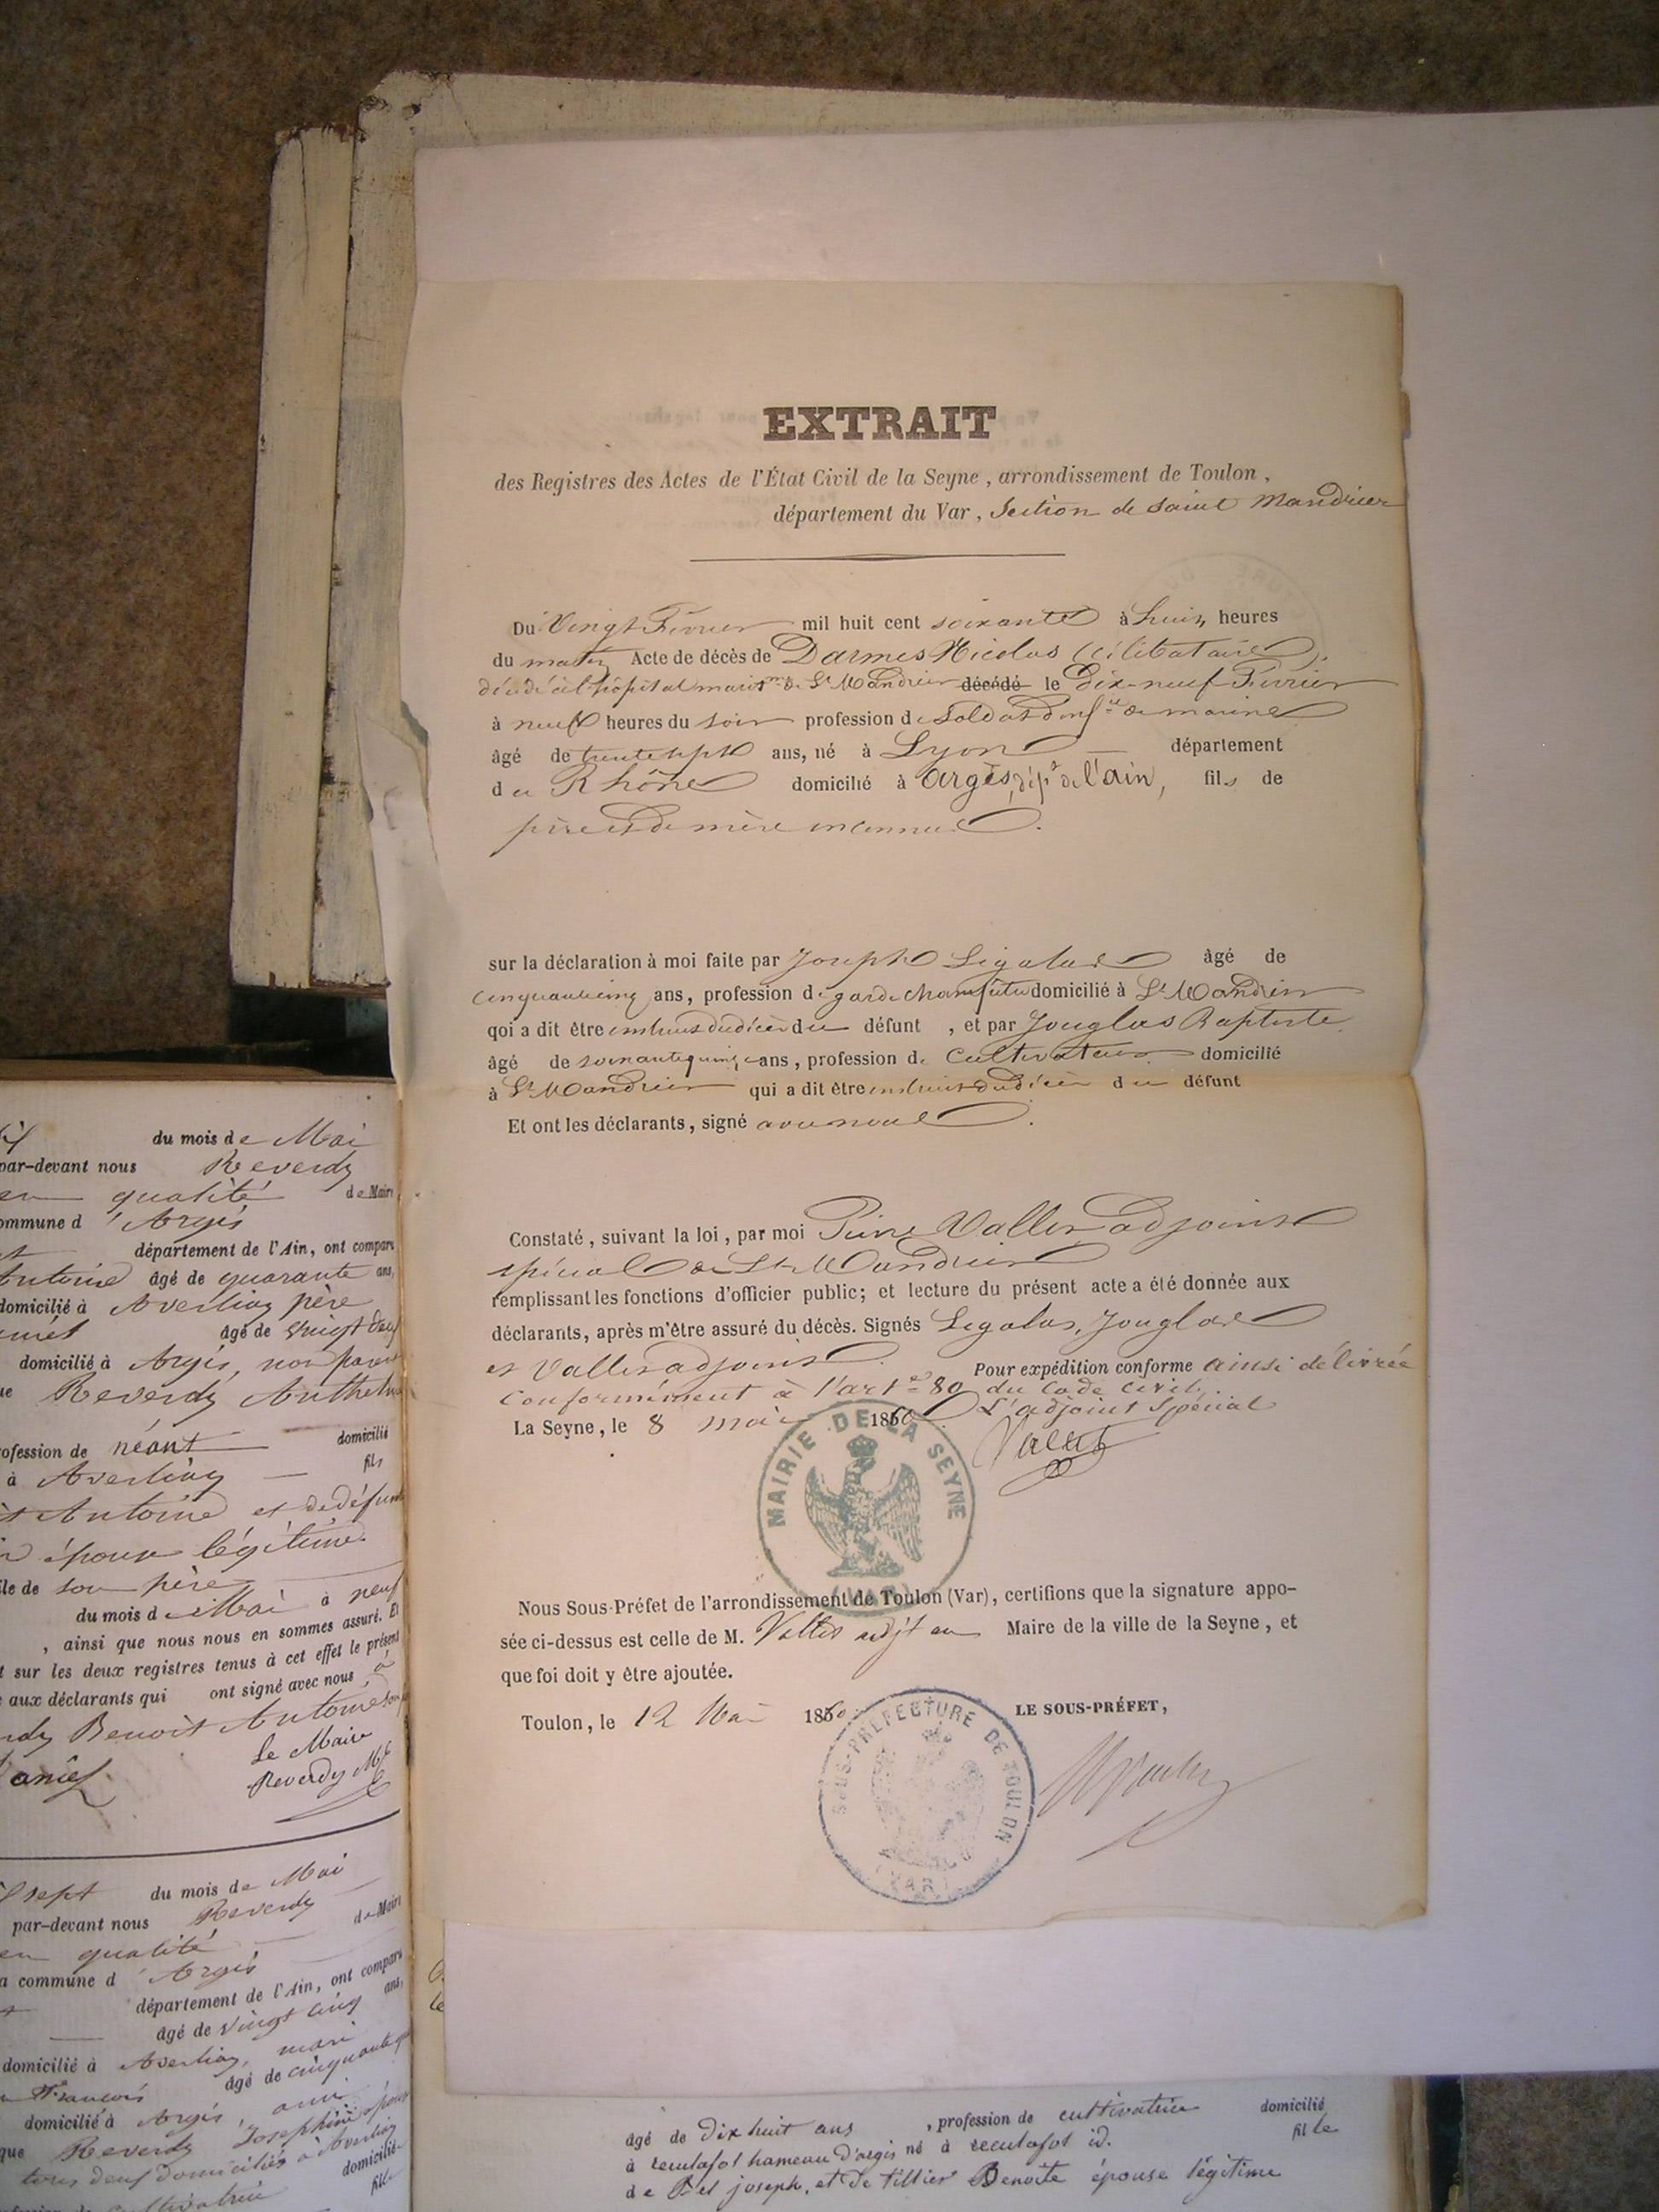 EXTRAIT
des Registres des Actes de l'État Civil de la Seyne, arrondissement de Toulon,
département du Var, Section de saint Mandrier
Du Vingt Fevrier mil huit cent soixante à huit heures
du matin Acte de décès de Darmes Nicolas (célibataire),
décédé à l'hôpital marit.me de St Mandrier décédé le Dix-neuf Fevrier
à neuf heures du soir profession de Soldat d'inf.ie de marine
âgé de trente sept ans, né à Lyon département
du Rhône domicilié à Argès, dép.t de l'ain, fils de
père et de mère inconnus.
sur la déclaration à moi faite par Joseph Ligalas âgé de
cinquante cinq ans, profession de garde champêtre domicilié à St Mandrier
qui a dit être instruit du décès du défunt, et par Jouglas Baptiste
âgé de soixante quinze ans, profession de Cultivateur domicilié
à St Mandrier qui a dit être instruit du décès du défunt
Et ont les déclarants, signé avec nous.
Constaté, suivant la loi, par moi Pierre Vallier adjoint
spécial de St Mandrier
remplissant les fonctions d'officier public; et lecture du présent acte a été donnée aux
déclarants, après m'être assuré du décès. Signés Legalas, Jouglas
et Vallier adjoint.
Pour expédition conforme ainsi délivrée
Conformément à l'art.e 80 du Code civil.
La Seyne, le 8 mai 1860 L'adjoint Spécial
MAIRIE DE LA SEYNE
(VAR)
Nous Sous-Préfet de l'arrondissement de Toulon (Var), certifions que la signature appo-
sée ci-dessus est celle de M. Vallier adjt au Maire de la ville de la Seyne, et
que foi doit y être ajoutée.
Toulon, le 12 Mai 1860
LE SOUS-PRÉFET,
SOUS-PRÉFECTURE DE TOULON
(VAR)
du mois de Mai
par-devant nous Reverdy
en qualité de Maire
commune d'Argis
département de l'Ain, ont comparu
Antoine âgé de quarante ans,
domicilié à Averliaz père
âgé de vingt deux
domicilié à Argis, non parent
Reverdy Anthelme
profession de néant domicilié
à Averliaz fils
Antoine et de défunte
épouse légitime
de son père
du mois de Mai à neuf
, ainsi que nous nous en sommes assuré. Et
sur les deux registres tenus à cet effet le présent
aux déclarants qui ont signé avec nous, à
Benoit Antoine
Le Maire
Reverdy
sept du mois de Mai
par-devant nous Reverdy
en qualité de Maire
la commune d'Argis
département de l'Ain, ont comparu
âgé de vingt cinq ans,
domicilié à Averliaz, mari
François âgé de cinquante
domicilié à Argis, ami
que Reverdy Josephine épouse
tous deux domiciliés à Averliaz
domicilié
fille
âgé de dix huit ans, profession de cultivatrice domicilié
à reculafol hameau d'argis né à reculafol id. fille
de joseph, et de tillier Benoite épouse légitime